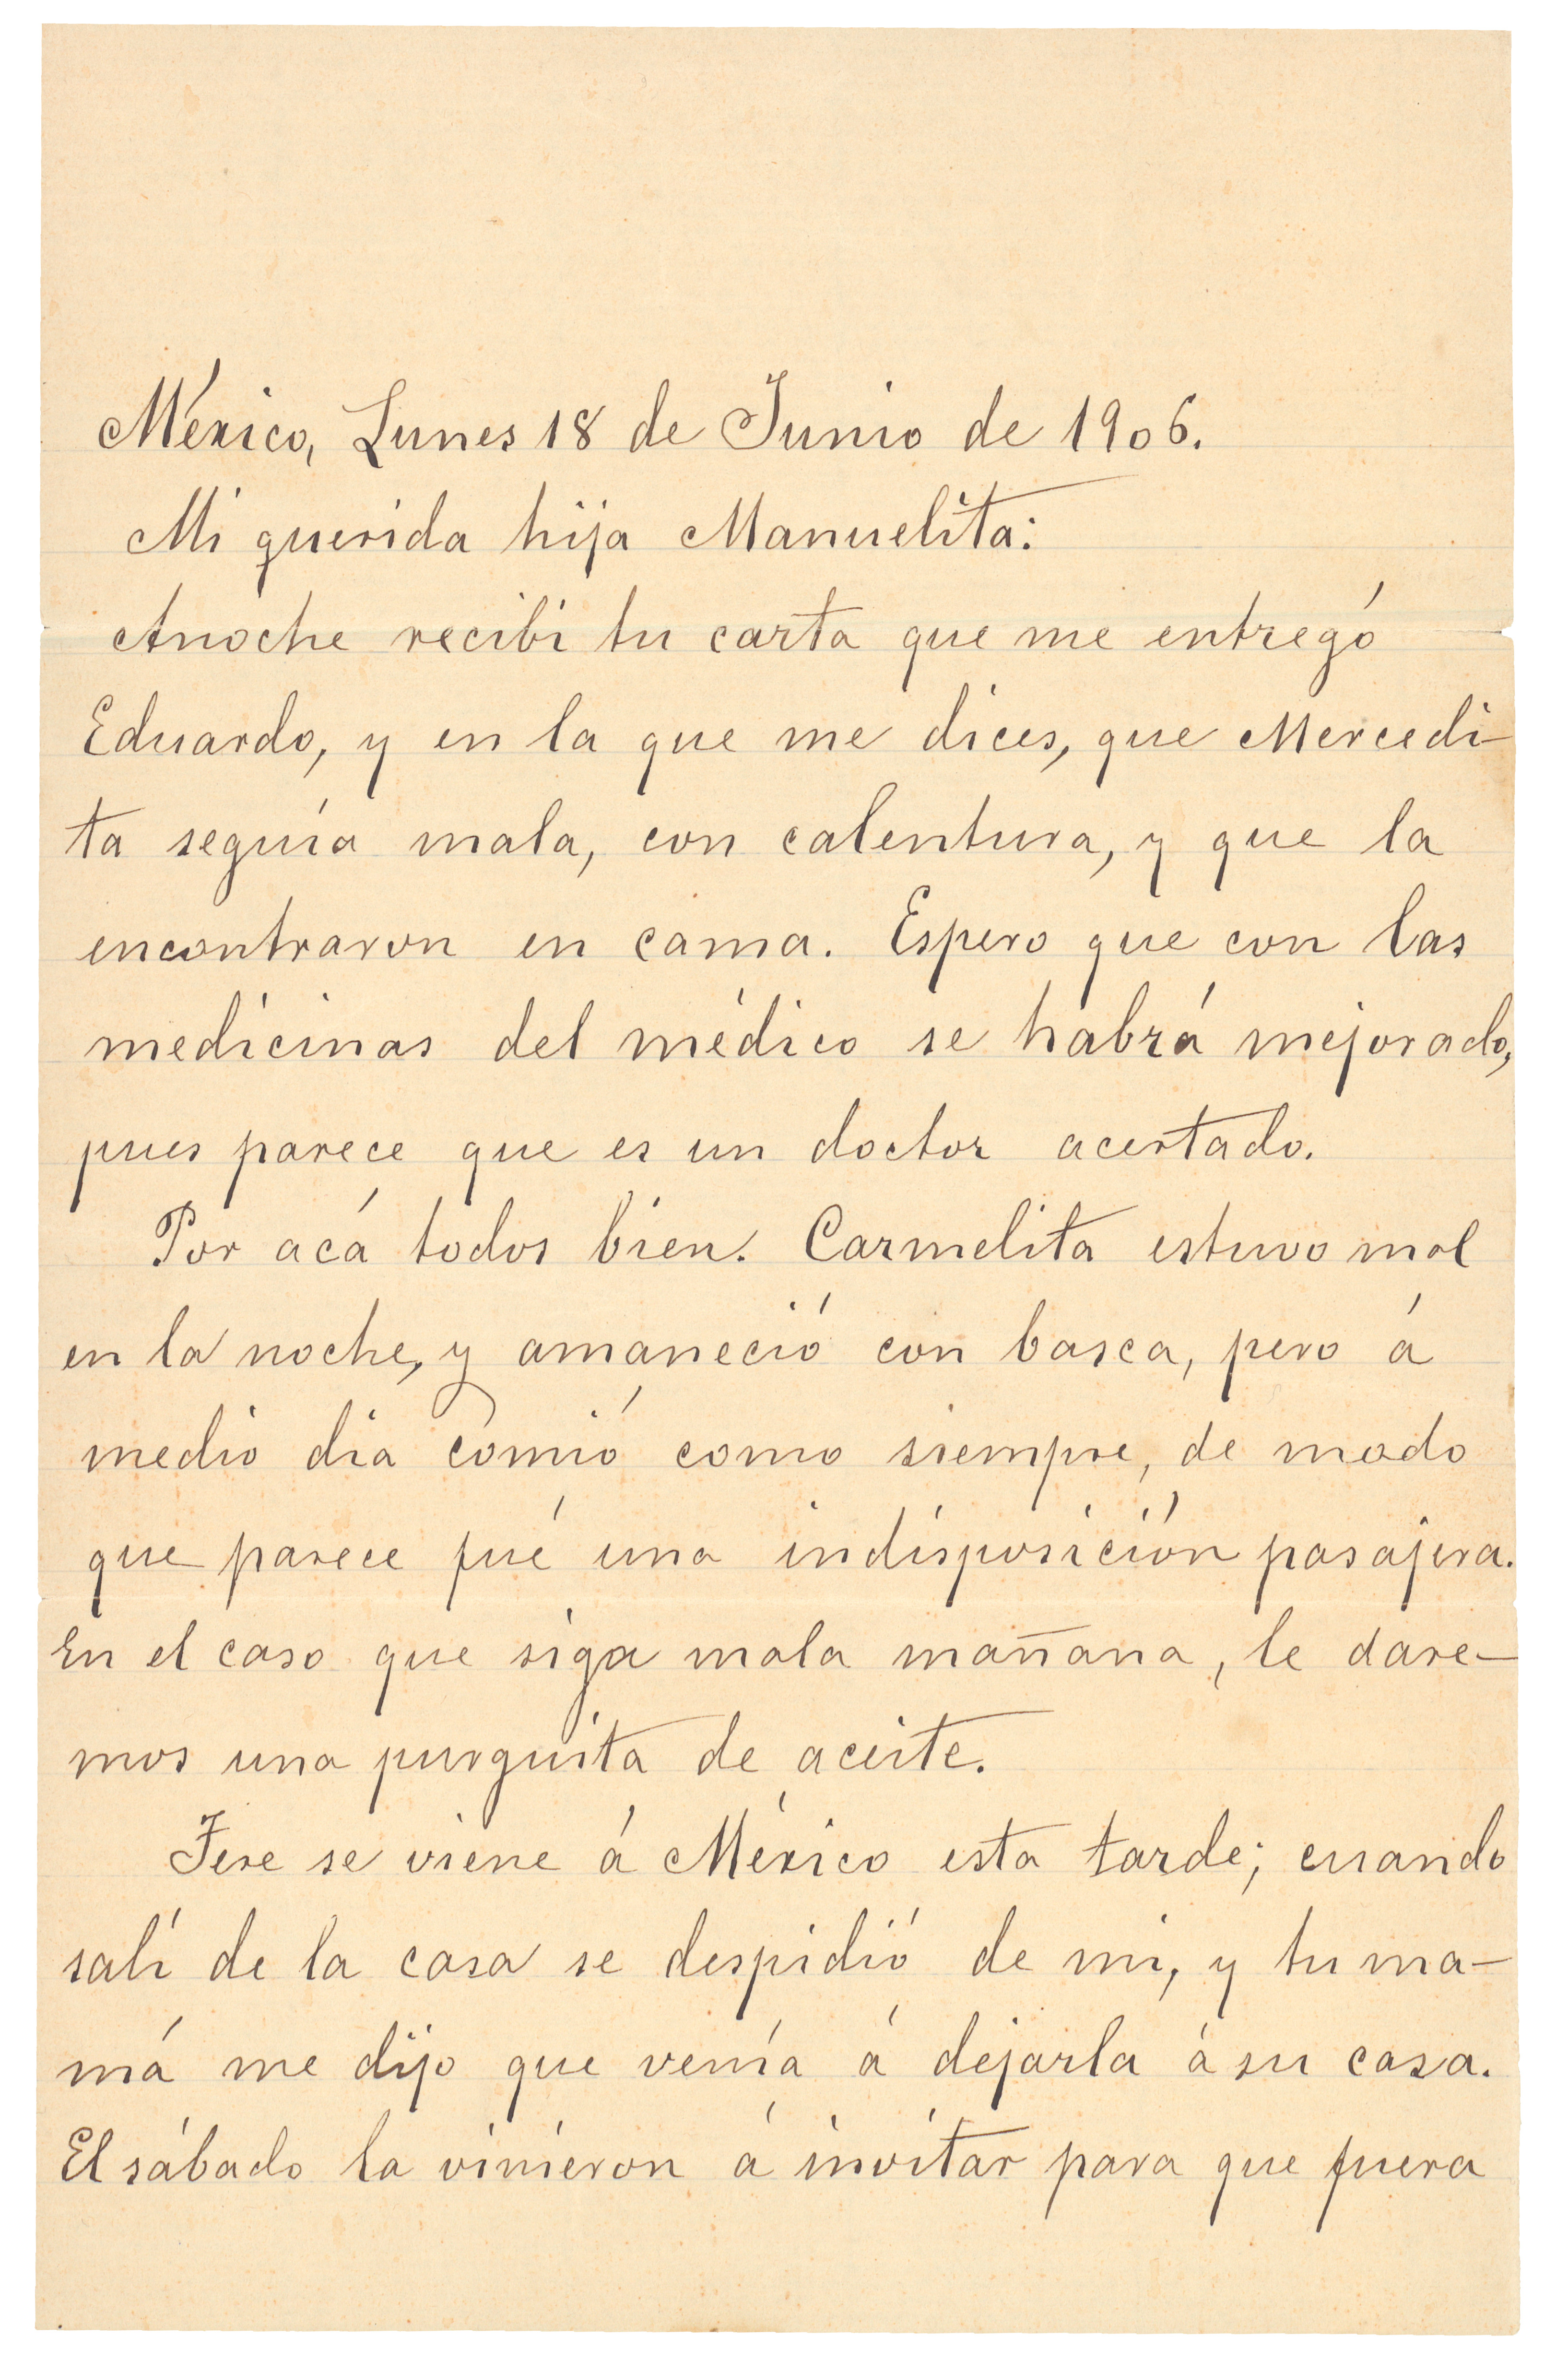 México, Lunes 18 de Junio de 1906.
Mi querida hija Manuelita:
Anoche recibi tu carta que me entregó
Eduardo, y en la que me dices, que Mercedi-
ta seguía mala, con calentura, y que la
encontraron en cama. Espero que con las
medicinas del médico se habrá mejorado,
pues parece que es un doctor acertado.
Por acá todos bien. Carmelita estuvo mal
en la noche, y amaneció con basca, pero á
medio dia comió como siempre, de modo
que parece fué una indisposición pasajera.
En el caso que siga mala mañana, le dare-
mos una purguita de aceite.
Tere se viene á México esta tarde; cuando
salí de la casa se despidió de mi, y tu ma-
má me dijo que venía á dejarla á su casa.
El sábado la vinieron á invitar para que fuera